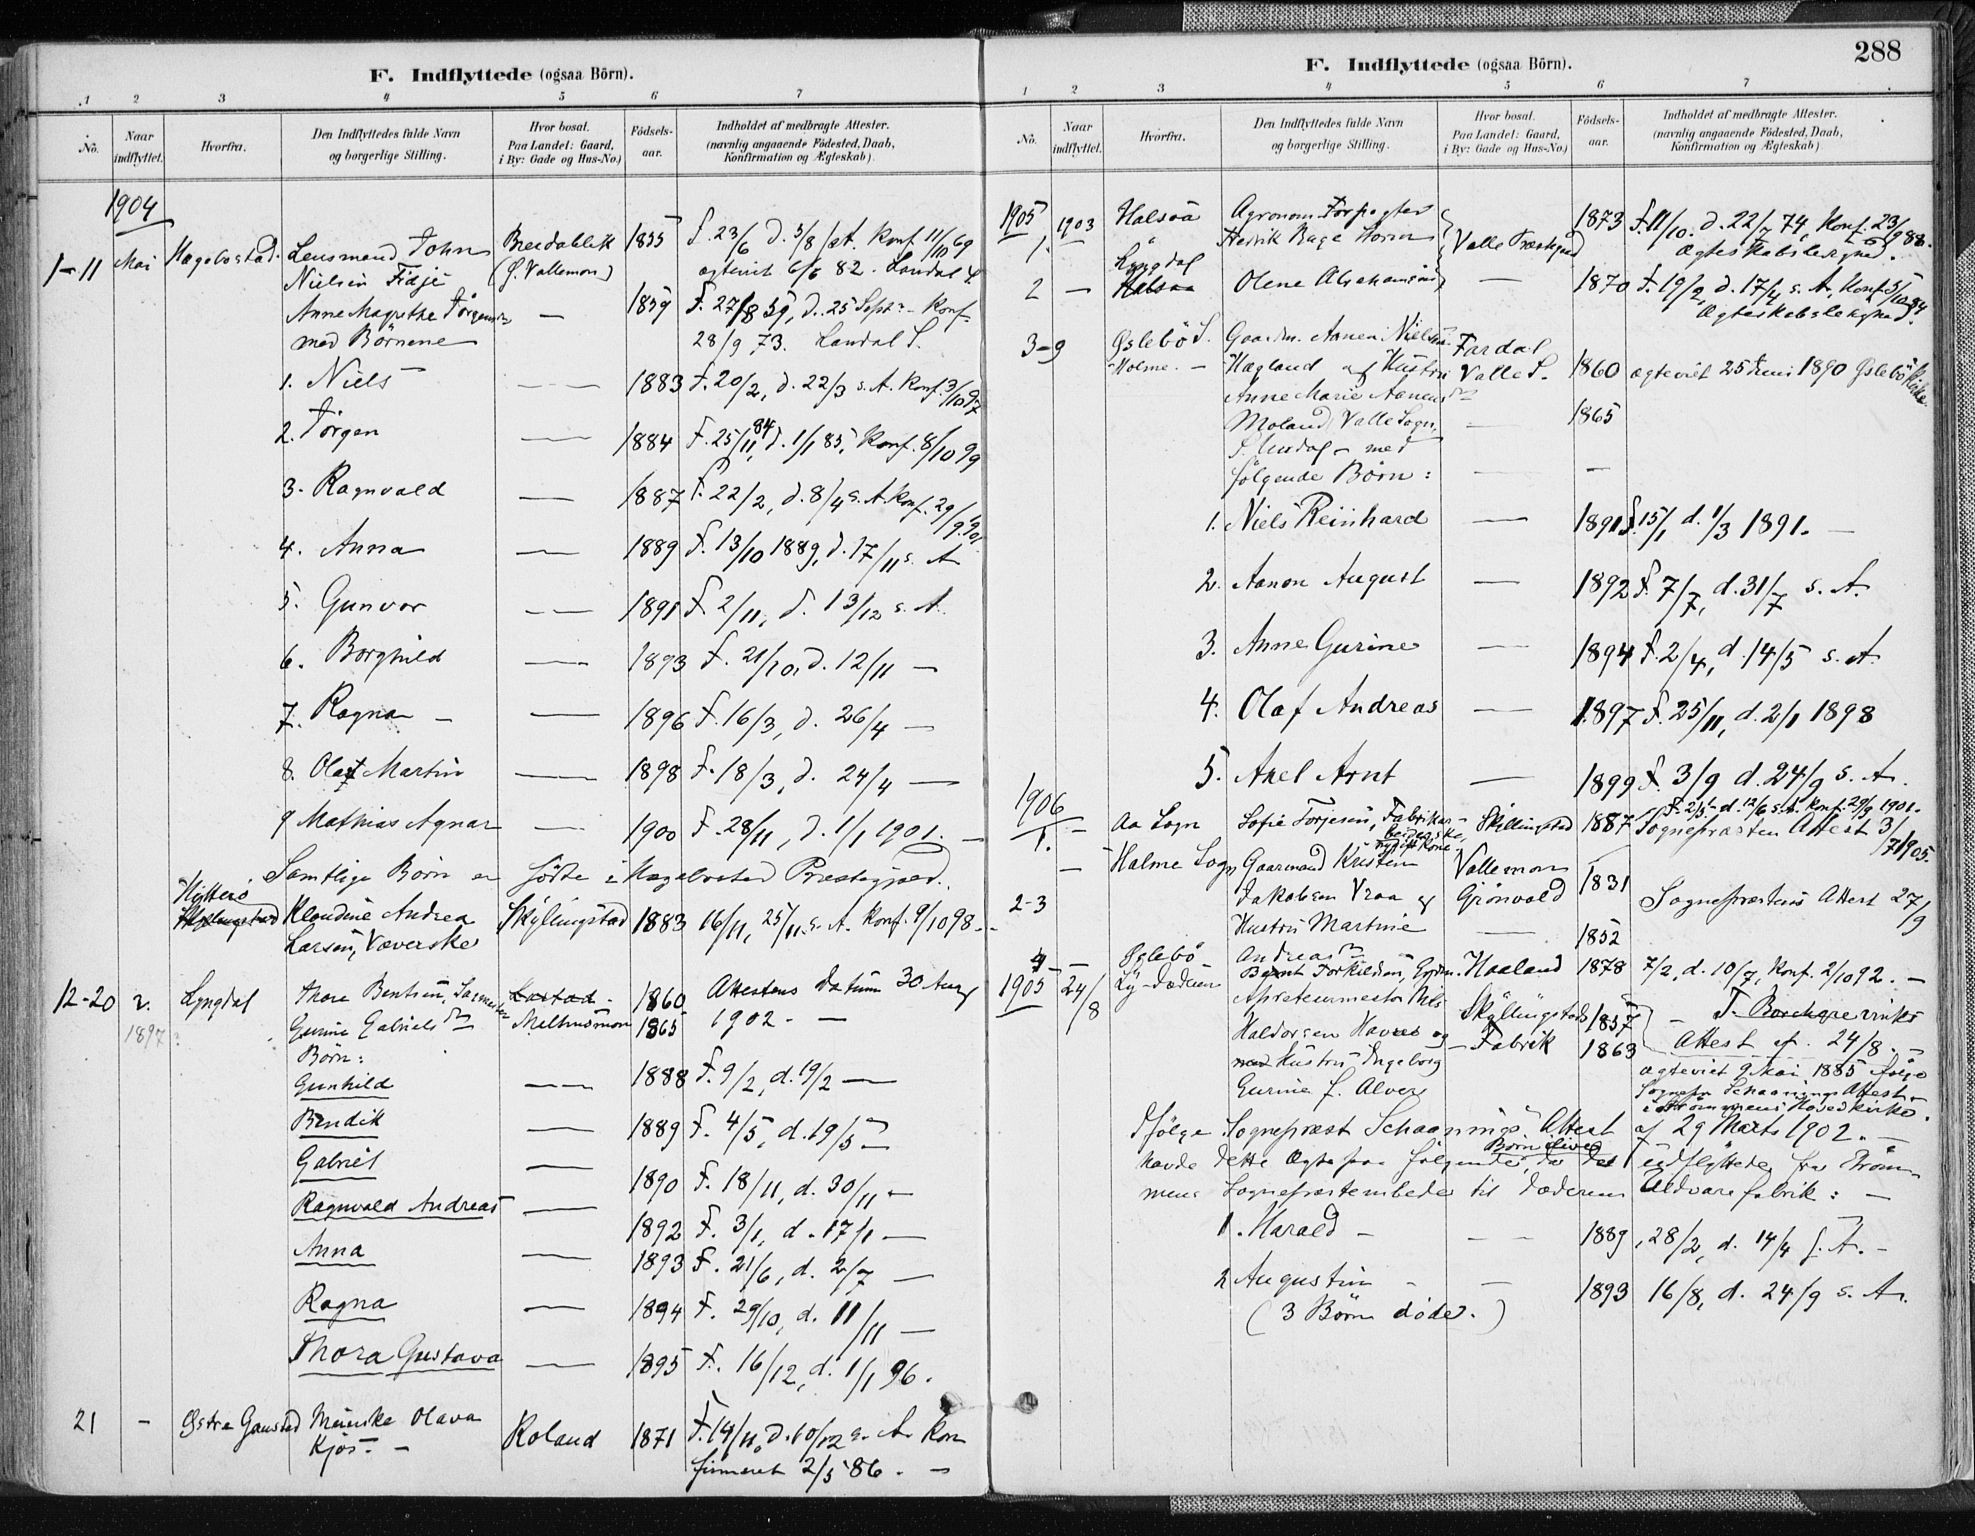 F. Indflyttede (ogsaa Börn).
1 2 3 4 5 6 7
No. Naar indflyttet. Hvorfra. Den Indflyttedes fulde Navn og borgerlige Stilling. Hvor bosat. Paa Landet: Gaard, i By: Gade og Hus-No.) Födsels-aar. Indholdet af medbragte Attester. (navnlig angaaende Födested, Daab, Konfirmation og Ægteskab)
1904
1-11 Mai Hægebostad Lensmand John Breidablik 1855 F. 23/6 d. 5/8 Konf. 11/10 69
Nielsen Fidje (f. Vallemon) 82. Landal S.
Anne Magrethe Jörgens — 1859 F. 27/8 59, d. 25 Sept. Konf.
med Børnene 28/9 73. Landal S.
1. Niels — 1883 F. 20/2, d. 22/3 s. A. Konf. 3/10 97
2. Jörgen — 1884 F. 25/11 84, d. 1/1 85, Konf. 8/10 99
3. Ragnvald — 1887 F. 22/2, d. 8/4 s. A. Konf. 29/9 1901
4. Anna — 1889 F. 13/10 1889, d. 17/11 s. A
5. Gunvor — 1891 F. 2/11, d. 13/12 s. A.
6. Borghild — 1893 F. 21/10, d. 12/11 —
7. Ragna — 1896 F. 16/3, d. 26/4 —
8. Olaf Martin — 1898 F. 18/3, d. 24/4 —
9 Mathias Agnar — 1900 F. 28/11, d. 1/1 1901. —
Samtlige Børn er fødte i Hægebostad Præstegjæld.
Hitterö
Klaudine Andrea Skyllingstad 1883 16/11, 25/11 s. A. Konf. 9/10 98
Larsen, Væverske
12-20 2. Lyngdal Thore Bentsen, 1860 Attestens Datum 30 Aug
1897? Gurine Gabriels Dn Melhusmon 1865 1902. —
Børn:
Gunhild — 1888 F. 9/2, d. 19/2 —
Bendik — 1889 F. 4/5, d. 19/5 —
Gabriel — 1890 F. 18/11, d. 30/11 —
Ragnvald Andreas — 1892 F. 3/1, d. 17/1 —
Anna — 1893 F. 21/6, d. 2/7 —
Ragna — 1894 F. 29/10, d. 11/11 —
Thora Gustava — 1895 F. 16/12, d. 1/1 96.
21 — Østre Gausdal Olava Roland 1871 F. 14/11, d. 10/12 s. A. Kon
Kjos. — firmeret 2/5 86. —
288
F. Indflyttede (ogsaa Börn).
1 2 3 4 5 6 7
No. Naar indflyttet. Hvorfra. Den Indflyttedes fulde Navn og borgerlige Stilling. Hvor bosat. Paa Landet: Gaard, i By: Gade og Hus-No.) Födsels-aar. Indholdet af medbragte Attester. (navnlig angaaende Födested, Daab, Konfirmation og Ægteskab)
1905 1903 Halsaa Agronom Forpagter 1873 F. 11/10. d. 22/2 74, Konf. 23/9 88.
1. Henrik Bage Valle Præstegaard Ægteskabsløegned.
Lyngdal
2 — Halsaa Olene Abrahamsen — 1870 F. 19/2, d. 17/4 s. A. Konf. 5/10 84
3-9 Øslebö S. Gaardm. Aanen Nielsen Fardal
Holme. — Hægland og Hustru Valle S. 1860 ægteviet 25 Juni 1890 Øslebö Kirke.
Anne Marie Aanens Dn
Moland, Valle Sogn, — 1865
med
følgende Børn: — —
1. Niels Reinhard — 1891 F. 15/1 d. 1/3 1891. —
2. Aanon August — 1892 F. 7/7, d. 31/7 s. A.
3. Anne Gurine — 1894 F. 2/4, d. 14/5 s. A.
4. Olaf Andreas — 1897 F. 25/11, d. 2/1 1898
5. Axel Arnt — 1899 F. 3/9 d. 24/9 s. A.
1906 F. 2/5 d. 12/6 s. A. Konf. 29/9 1901.
1. — Aa Sogn Sofie Torjesen, Fabrikar- Skillingstad 1887 Sognepræstens Attest 3/7 1905.
beiderske,
— Halme Sogn Gaarmand Kristen Vallemon
2-3 Jakobsen Vraa og Grönvold 1831 Sognepræstens Attest 27/9
Hustru Martine — 1852
Andreas Dn
4 — Øslebö Bernt Torkildsen, Haaland 1878 7/2, d. 10/7, Konf. 2/10 92. —
1905 24/8 Apreteurmester Nils Skyllingstad 1857
Haldorsen og Fabrik 1863 Attest af 24/8. —
Hustru Ingeborg ægteviet 9 Mai 1885 ifølge
Gurine f. Alver Sognepr. Schaanings Attest
i Strömmens Hovedkirke.
Ifölge Sognepræst Schaanings Attest af 29 Marts 1902. —
havde dette Ægtepar følgende Børn ilive, da det udflyttede fra Ström-
mens Sognepræstembede til Dæderens Uldvarefabrik: —
1. Harald — — 1889, 28/2, d. 14/4 s. A. —
2 Augustin — — 1893 16/8, d. 24/9 s. A.
(3 Börn døde.)